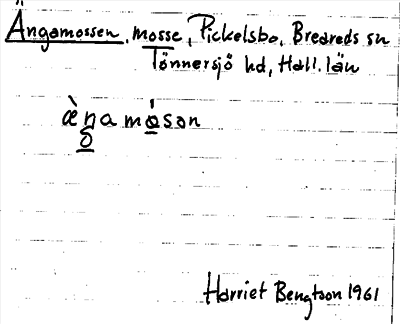 Ängamossen, mosse, Pickelsbo, Breareds sn
Tönnersjö hd, Hall. län
Harriet Bengtson 1961